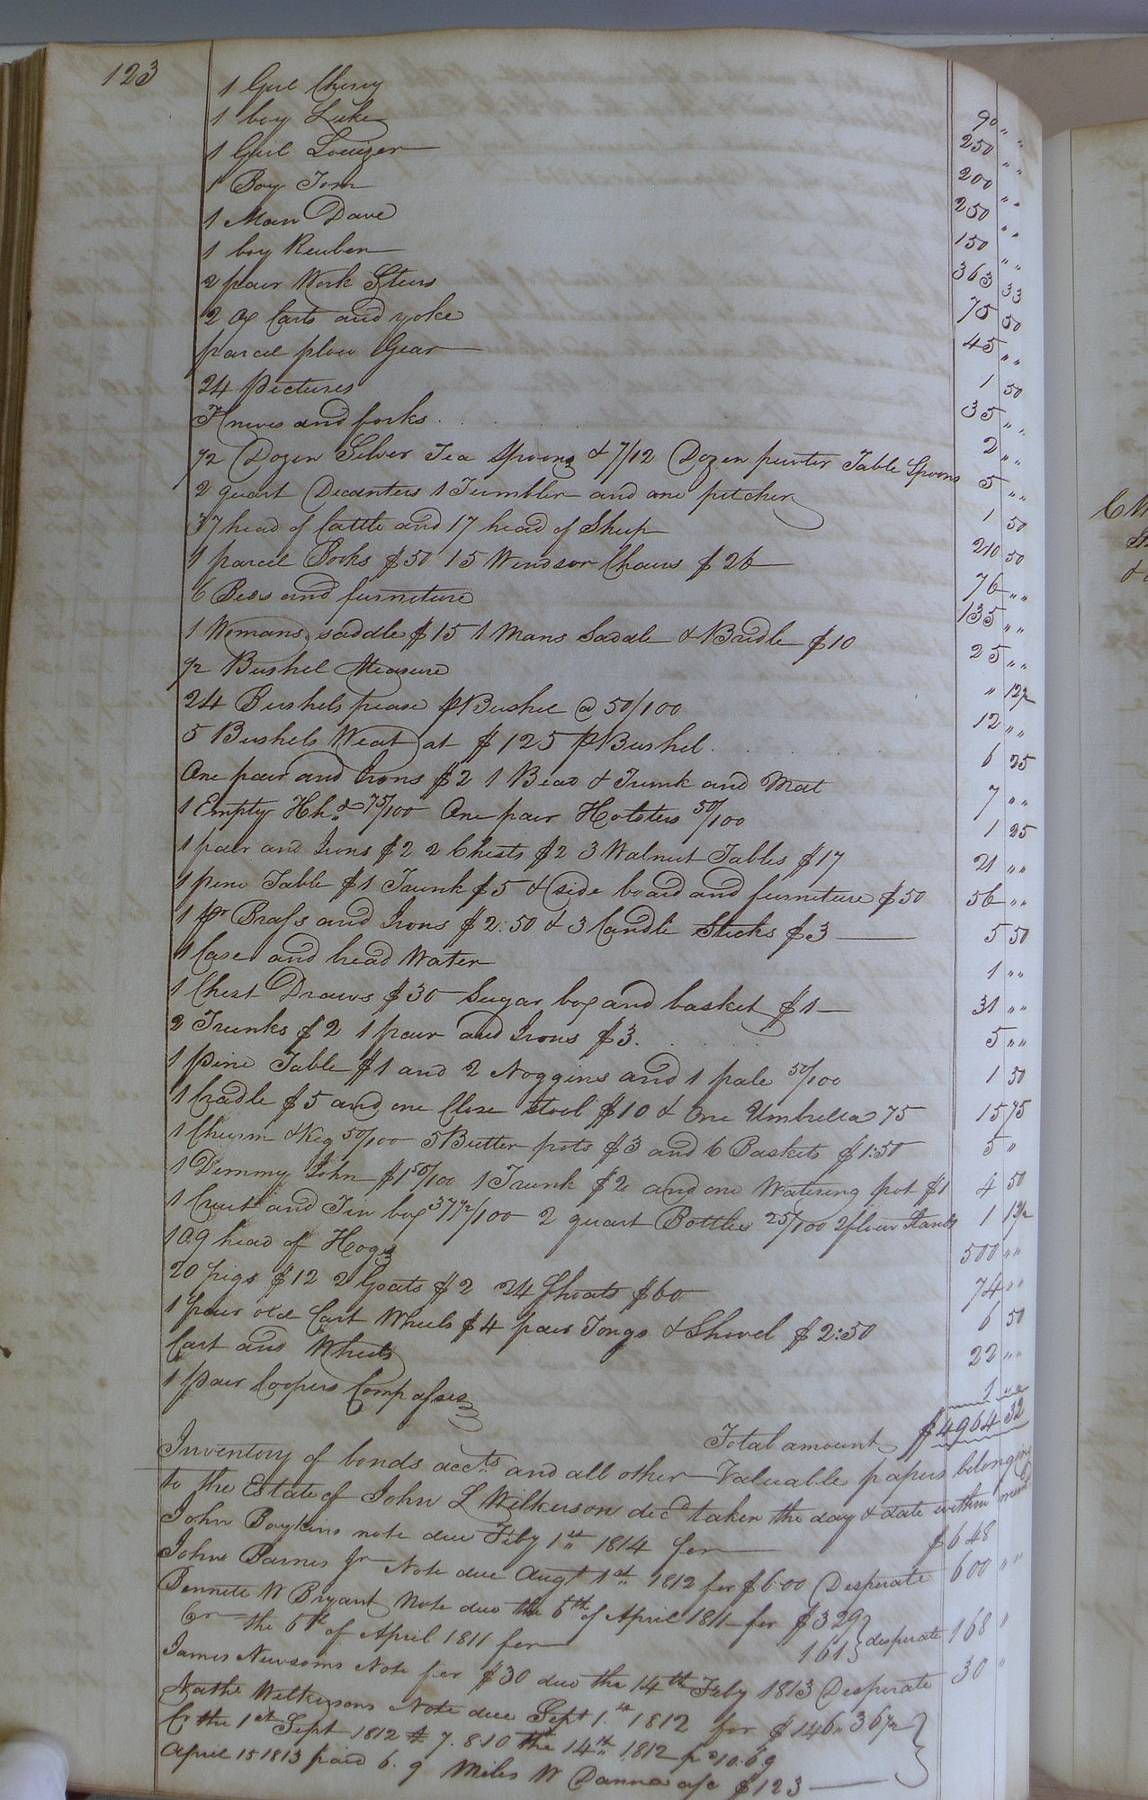 123
1 Girl Cherry 90 " "
1 boy Luke 250 " "
1 Girl Louizer 200 " "
1 Boy Tom 250 " "
1 Man Dave 150 " "
1 boy Reuben 363 33
2 pair Work Steers 75 50
2 ox Carts and yoke 45 " "
parcel plow Gear 1 50
24 Pictures 35 " "
Knives and forks 2 " "
1/2 Dozen Silver Tea Spoons & 7/12 Dozen pewter Table Spoons 5 " "
2 quart Decanters 1 Tumbler and one pitcher 1 50
37 head of Cattle and 17 head of Sheep 210 50
1 parcel Books $50 15 Windsor Chairs $26 76 " "
6 Beds and furniture 135 " "
1 Womans saddle $15 1 Mans Saddle & Bridle $10 25 " "
1/2 Bushel Measure " 12 1/2
24 Bushels pease pr Bushel @ 50/100 12 " "
5 Bushels Weat at $125 pr Bushel 6 25
One pair and Irons $2 1 Bead & Trunk and Mat 7 " "
1 Empty Hhd 75/100 One pair Holsters 50/100 1 25
1 pair and Irons $2 2 Chests $2 3 Walnut Tables $17 21 " "
1 pine Table $1 Trunk $5 & side board and furniture $50 56 " "
1 pr Brass and Irons $2.50 & 3 Candle Sticks $3 5 50
1 Case and head Water 1 " "
1 Chest Draws $30 Sugar box and basket $1 31 " "
2 Trunks $2 1 pair and Irons $3. 5 " "
1 Pine Table $1 and 2 Noggins and 1 pale 50/100 1 50
1 Cradle $5 and one Close Stool $10 & One Umbrella 75 15 75
1 Churm & Keg 50/100 5 Butter pots $3 and 6 Baskets $1:50 5 "
1 Dimmy John $1 50/100 1 Trunk $2 and one Watering pot $1 4 50
1 Cruit and Tin box 37 1/2/100 2 quart Bottles 25/100 2 flour Stands 1 12 1/2
109 head of Hogs 500 " "
20 pigs $12 2 Goats $2 24 Shoats $60 74 " "
1 pair old Cart Wheels $4 pair Tongs & Shovel $2:50 6 50
Cart and Wheels 22 " "
1 Pair Coopers Compasses 1 " "
Total amount $4964 32
Inventory of bonds accts and all other Valuable papers belonging
to the Estate of John L Wilkerson decd taken the day & date within
John Boykins note due Feby 1st 1814 for $648
John Barnes Jr Note due Augt 1st 1812 for $600 Desperate 600 " "
Bennett W Bryant Note due the 6th of April 1811 for $329
Cr the 6th of April 1811 for 161 desperate 168 "
James Newsoms Note for $30 due the 14th Feby 1813 Desperate 30 "
Nathl Wilkersons Note due Sept 1st 1812 for $146 " 36 1/2
Cr the 1st Sept 1812 $ 7.8.10 the 14th 1812 10.69
April 15 1813 paid 6.9 Miles W a/c $123